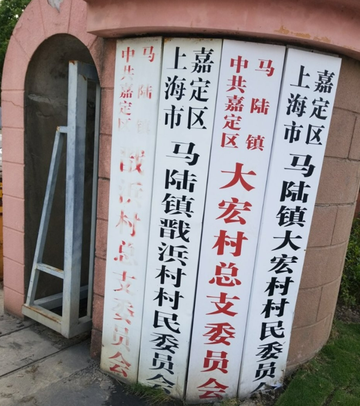 中共嘉定区
马陆镇
戬浜村总支委员会
上海市
嘉定区
马陆镇戬浜村村民委员会
中共嘉定区
马陆镇
大宏村总支委员会
上海市
嘉定区
马陆镇大宏村村民委员会